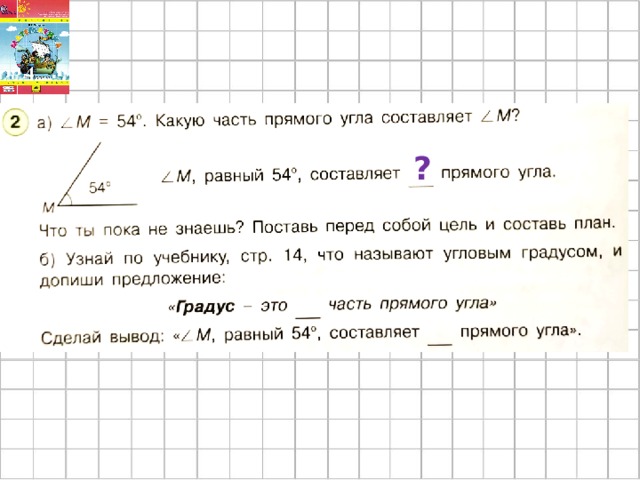 2 а) ∠М = 54°. Какую часть прямого угла составляет ∠М?
∠М, равный 54°, составляет ? прямого угла.
54°
М
Что ты пока не знаешь? Поставь перед собой цель и составь план.
б) Узнай по учебнику, стр. 14, что называют угловым градусом, и
допиши предложение:
«Градус – это ___ часть прямого угла»
Сделай вывод: «∠М, равный 54°, составляет ___ прямого угла».